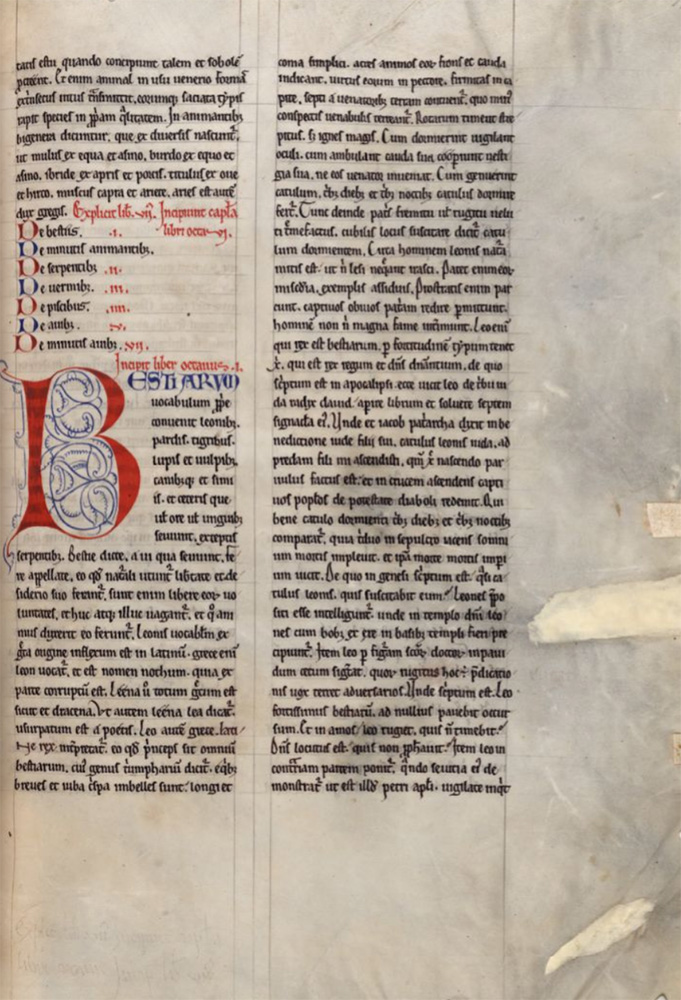 taris estu quando concipiunt talem et sobolē
pcreent. Et enim animal in usu uenerio formā
extrīsecus intus t̄nsmittit, eorumq; saciata tẏpis
rapit species in ꝓpam q̄litatem. In animantibꝫ
bigenera dicuntur, que ex diuersis nascunt᷑,
ut mulus ex equa et asino. burdo ex equo et
asino. ibride ex apris et porcis. titulus ex oue
et hirco. musicus capra et ariete. aries est autē
dux gregis. Explicit lib. vii. Incipiunt capl̄a
De bestiis. .i. libri octavi.
De minutis animantibꝫ.
De serpentibꝫ .ii.
De uermibꝫ. .iii.
De piscibus. .iiii.
De auibꝫ. .v.
De minutis auibꝫ. .vii.
Incipit liber octauus. .i.
BESTIARVM
uocabulum ꝓpe
conuenit leonibꝫ.
pardis. tigribus.
lupis et uulpibꝫ.
canibꝫq; et simi
is. et ceteris que
ut ore ut unguibꝫ
seuiunt, exceptis
serpentibꝫ. Bestie dicte, a ui qua seuiunt. fe
re appellate, eo qđ nat̄ali utunt᷑ lib̄tate et de
siderio suo ferant᷑. sunt enim libere eoꝝ uo
luntates, et huc atq; illuc uagant᷑. et q̊ ani
mus duxerit eo ferunt᷑. Leonis uocablm̄ ex
g̃ca origine inflexum est in latinū. grece eni
leon uocat᷑, et est nomen nothum. quia ex
parte corruptū est. Leēna ū totum g̃cum est
sicut et dracena. Vt autem leēna lea dicat᷑.
usurpatum est a poetis. Leo autē grece. lati
ne rex int̄pretat᷑. eo qđ p̄nceps sit omniū
bestiarum. cui genus t̄imphariū dicit᷑. eqbꝫ
breues et iuba c̄spa imbelles sunt. longi et
coma simplici. acres animos eoꝝ frons et cauda
indicant. uirtus eorum in pectore. firmitas in ca
pite. septi a uenatoribꝫ terram contuent᷑, quo min᷒
conspectis uenabulis terreant᷑. Rotarum timent stre
pitus. sꝫ ignes magis. Cum dormierint uigilant
oculi. cum ambulant cauda sua coopiunt uesti
gia sua. ne eos uenator inueniat. Cum genuerint
catulum. t̄bꝫ diebꝫ et t̄bꝫ noctibꝫ catulus dormire
fert᷑. Tunc deinde patris fremitu ut rugitu uelu
ti t̄mefactus. cubilis locus suscitare dicit᷑ catu
lum dormientem. Circa hominem leonis nat̄a
mitis est. ut n̄ lesi neq̄ant irasci. Patet enim eoꝝ
misc̄dia, exemplis assiduis. Prostratis enim par
cunt. captiuos obuios pat̄am redire p̄mittunt.
hominē non n̄ magna fame int̄imunt. Leo eni
qui rex est bestiarum. ꝓ fortitudine tẏpum tenet
x̄. qui est rex regum et dn̄s dn̄antium. de quo
sc̄ptum est in apocalipsi. ecce uicit leo de t̄bu iu
da radix dauid. apire librum et soluere septem
signac̄la ei᷒. Unde et iacob pat̄archa dixit in be
nedictione iude filii sui. catulus leonis iuda. ad
predam fili mi ascendisti. qui x̄ nascendo par
uulus factus est. et in crucem ascendens capti
uos popl̄os de potestate diaboli redemit. Qui
bene catulo dormienti t̄bꝫ diebꝫ et t̄bꝫ noctibꝫ
comparat᷑, quia t̄duo in sepulcro iacens somni
um mortis impleuit. et ip̄a morte mortis impi
um uicit. De quo in genesi sc̄ptum est. q̄si ca
tulus leonis. quis suscitabit eum. Leones ꝓpo
siti esse intelligunt᷑. unde in templo dn̄i leo
nes cum bobꝫ ex ere in basibꝫ templi fieri pre
cipiunt᷑. Item leo ꝑ figuram sc̄oꝝ doctoꝝ inpaui
dum cetum sig̃at. quoꝝ rugitus hoc ē p̄dicatio
nis uox terret aduersarios. Unde sc̄ptum est. Leo
fortissimus bestiarū. ad nullius pauebit occur
sum. Et in amos. leo rugiet. quis n̄ timebit.
Dn̄s locutus est. quis non ꝓphauit. Item leo in
cont̄riam partem ponit᷑. q̄ndo seuicia ei᷒ de
monstrat᷑. ut est illđ petri apl̄i. uigilate inq̇t